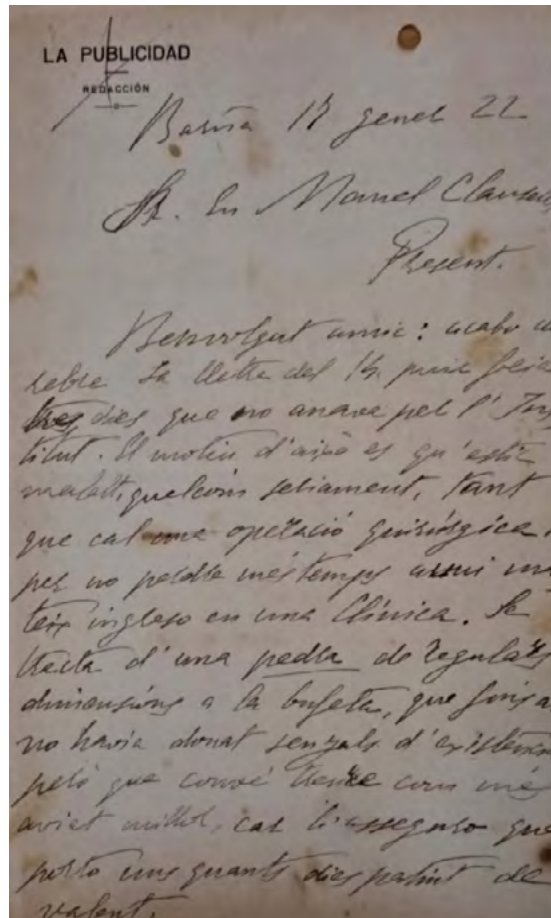 LA PUBLICIDAD
REDACCIÓN
Barna 17 gener 22
Sr. En Manel
Present.
Benvolgut amic: acabo
rebre sa lletra del 14 puix feia
tres dies que no anava pel l' Ins
titut. El motiu d'això es qu'estic
malalt, quelcom seriament, tant
que cal una operació quirúrgica.
per no perdre més temps avui ma
teix ingreso en una Clínica. Se
tracta d'una pedra de regulars
dimensións a la bufeta, que fins a
no havia donat senyals d'existencia
però que convé treure com més
aviat millor, car li asseguro que
porto uns quants dies patint de
valent.